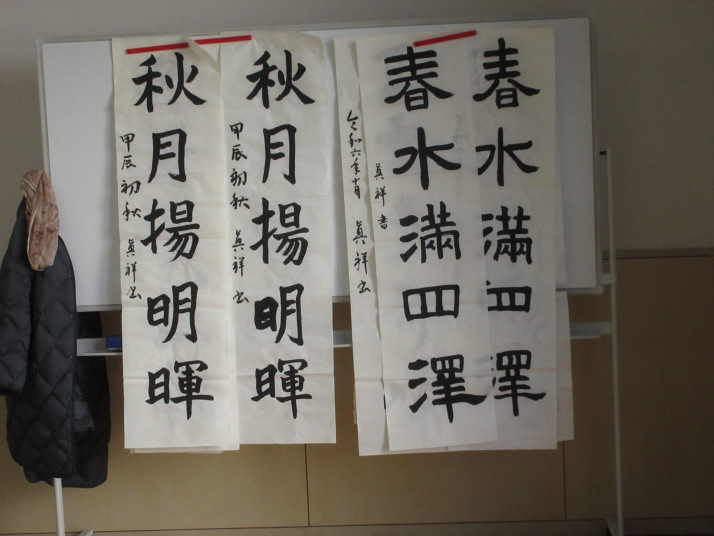 春水満四澤
春水満四澤
眞祥書
令和六年十月 眞祥書
秋月揚明暉
甲辰初秋 眞祥書
秋月揚明暉
甲辰初秋 眞祥書